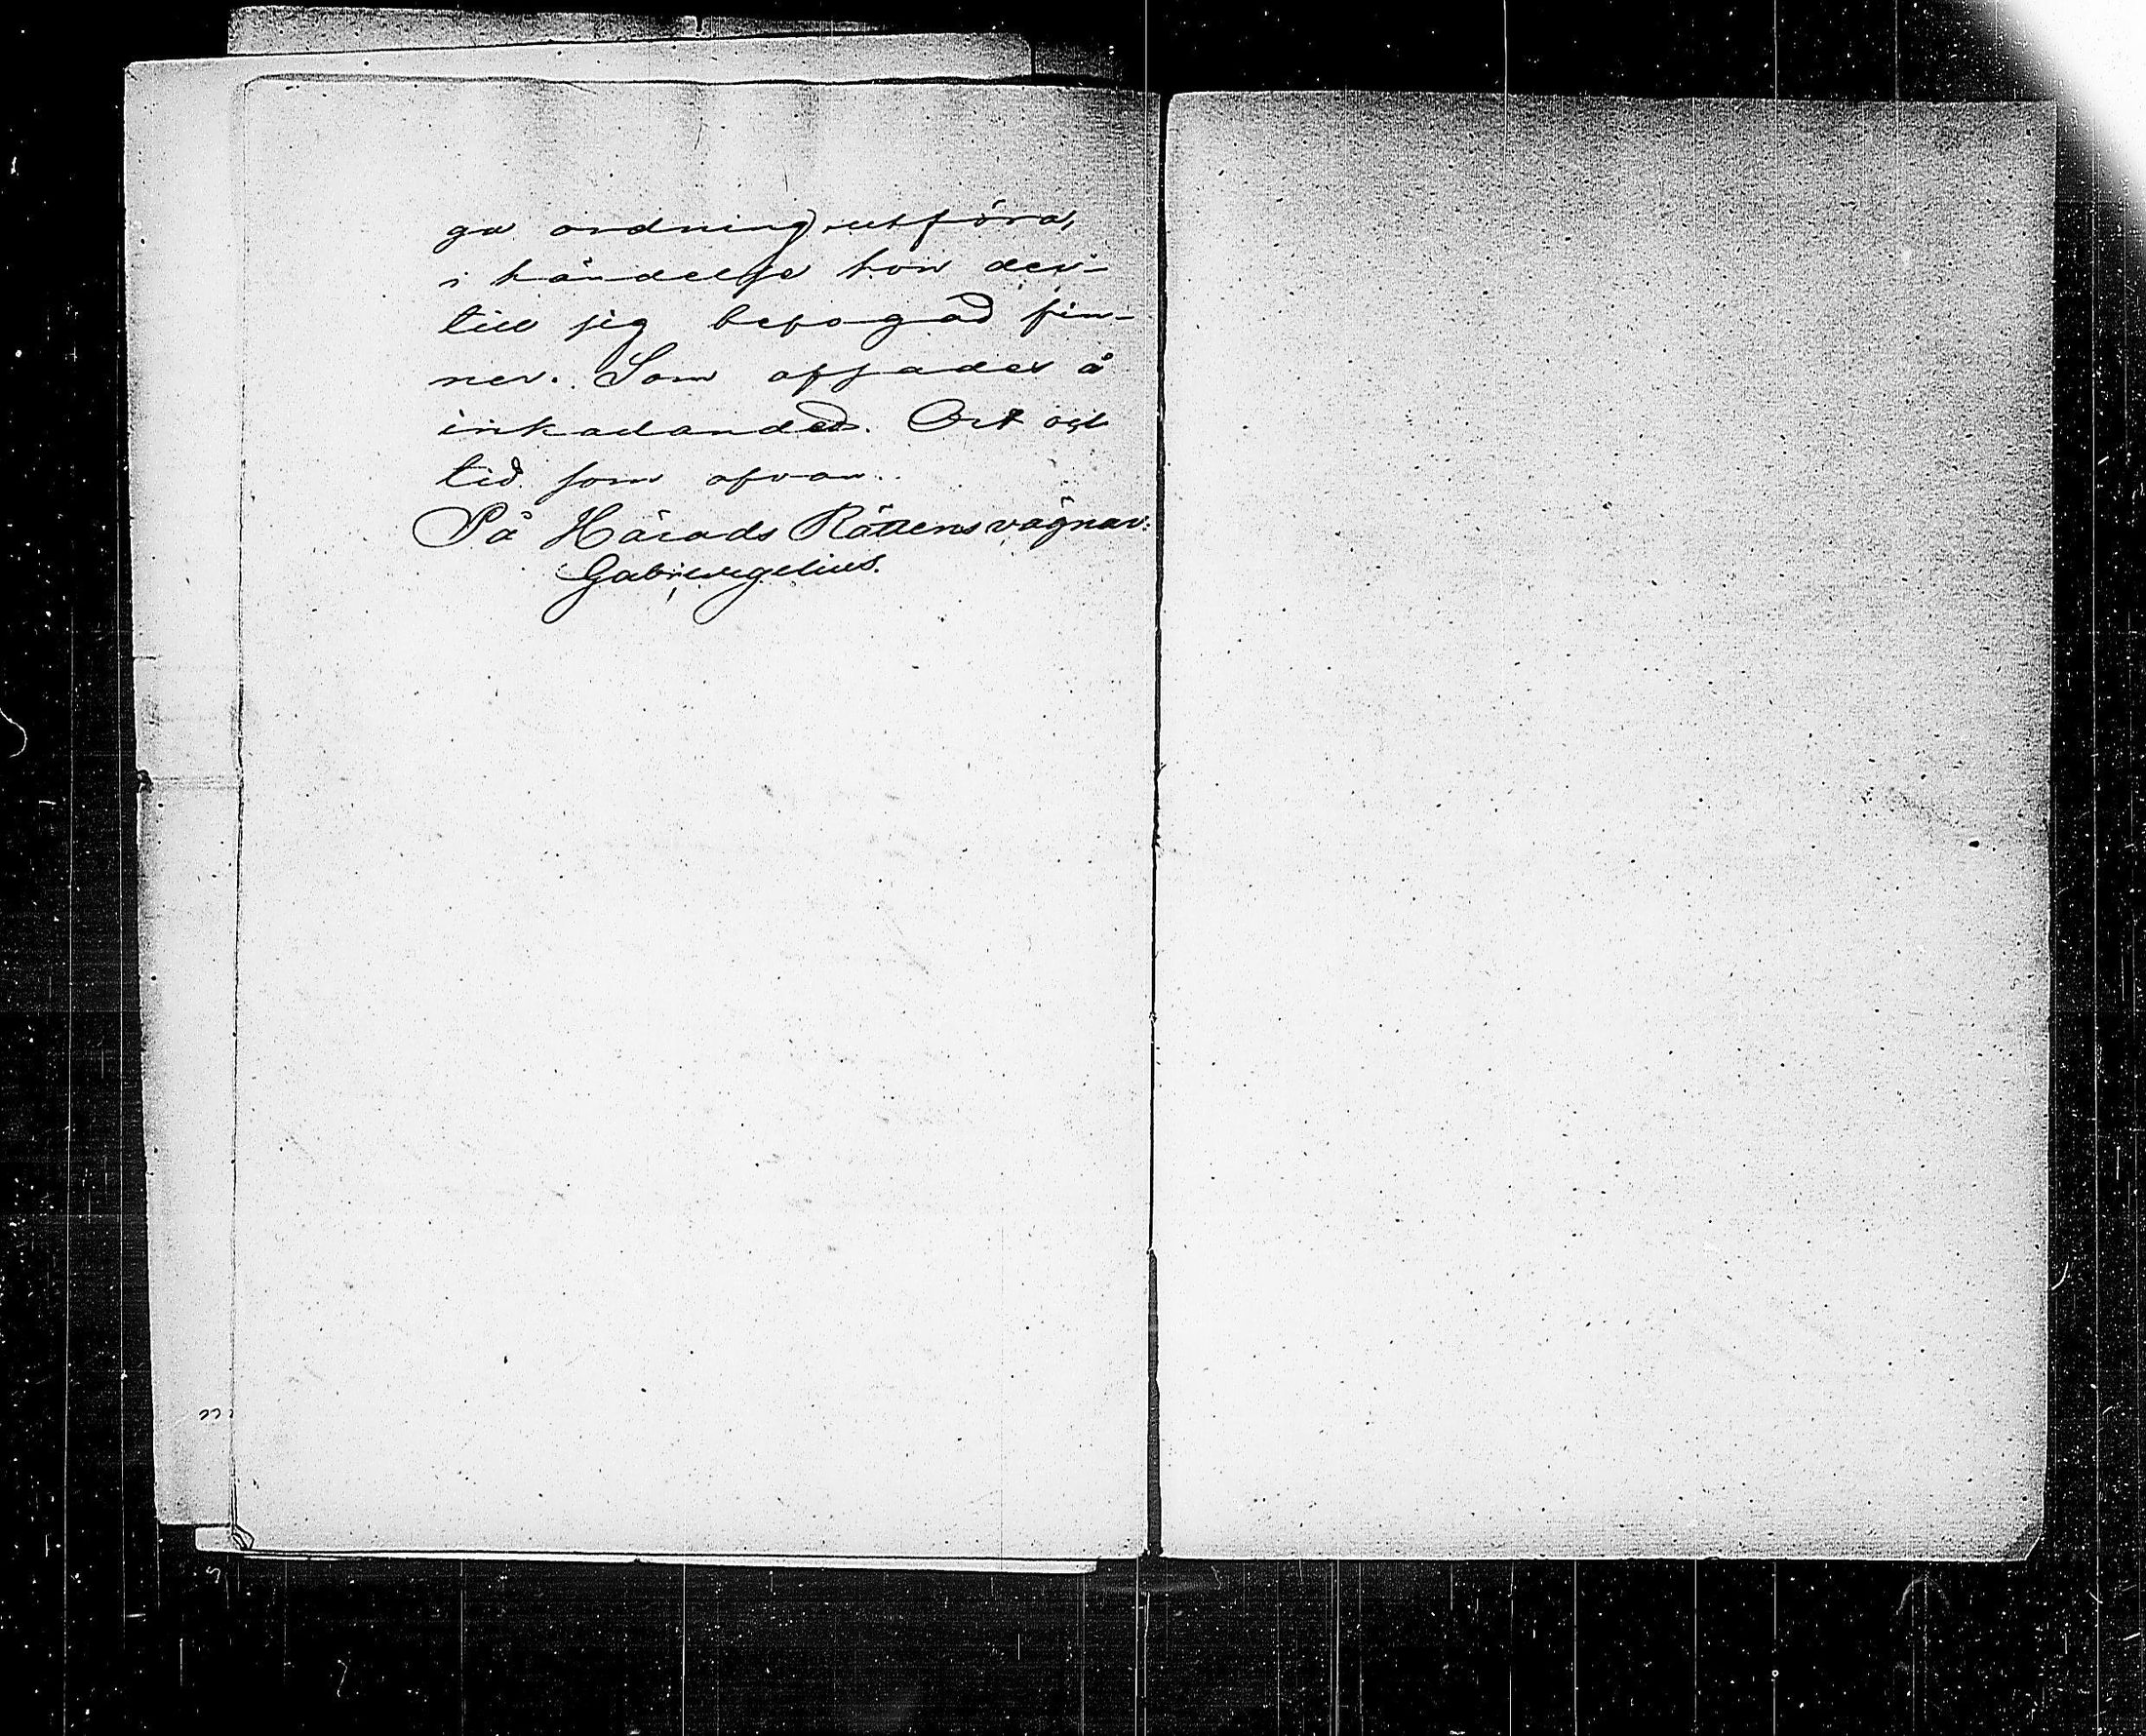 ga ordning utföra,
i händelse hon der-
till sig befogad fin-
ner. Som afsades å
inkadanded. Ort och
tid som ofvan.
På Härads Rättens vägnar: